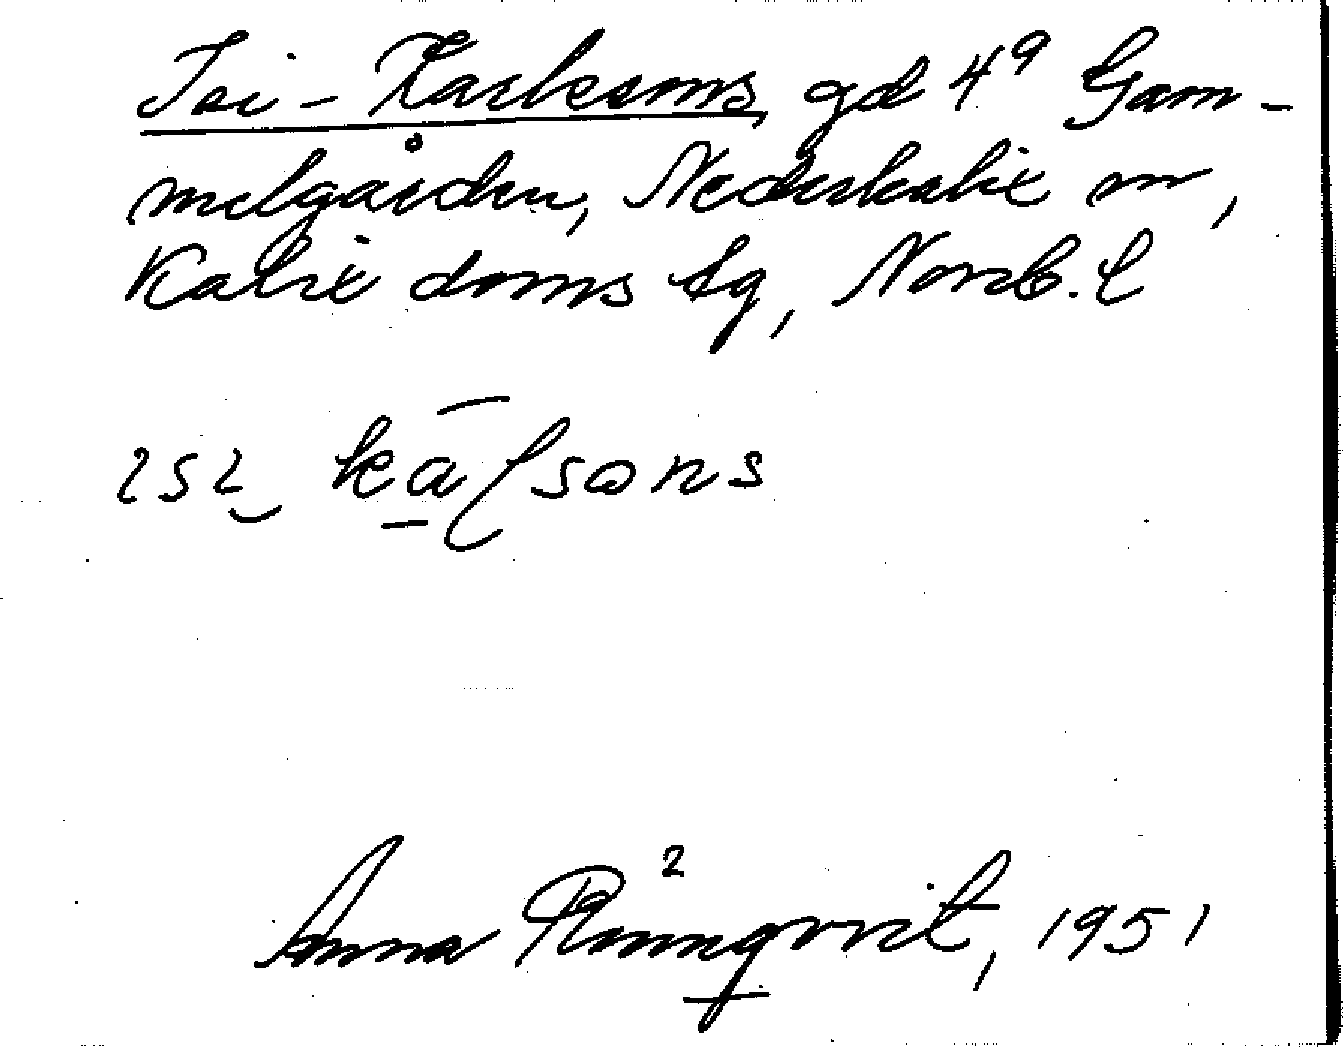 Isi-Karlsons, gd 4⁹ Gam-
melgården, Nederkalix sn,
Kalix doms lg, Norrb. l
kālsons
Anna Rönnqvist, 1951